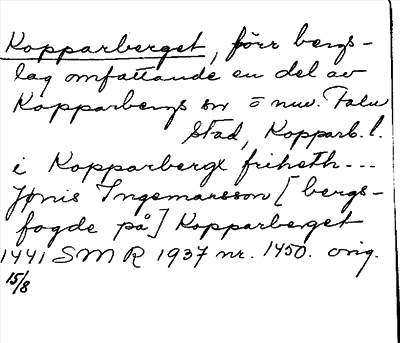 Kopparberget, förr bergs-
lag omfattande en del av
Kopparbergs sn o nuv. Falu
stad, Kopparb. l.
i Kopparbergx friheth---
Jönis Ingemarsson [bergs-
fogde på] Kopparberget
1441 SMR 1937 nr. 1450. orig.
15/8